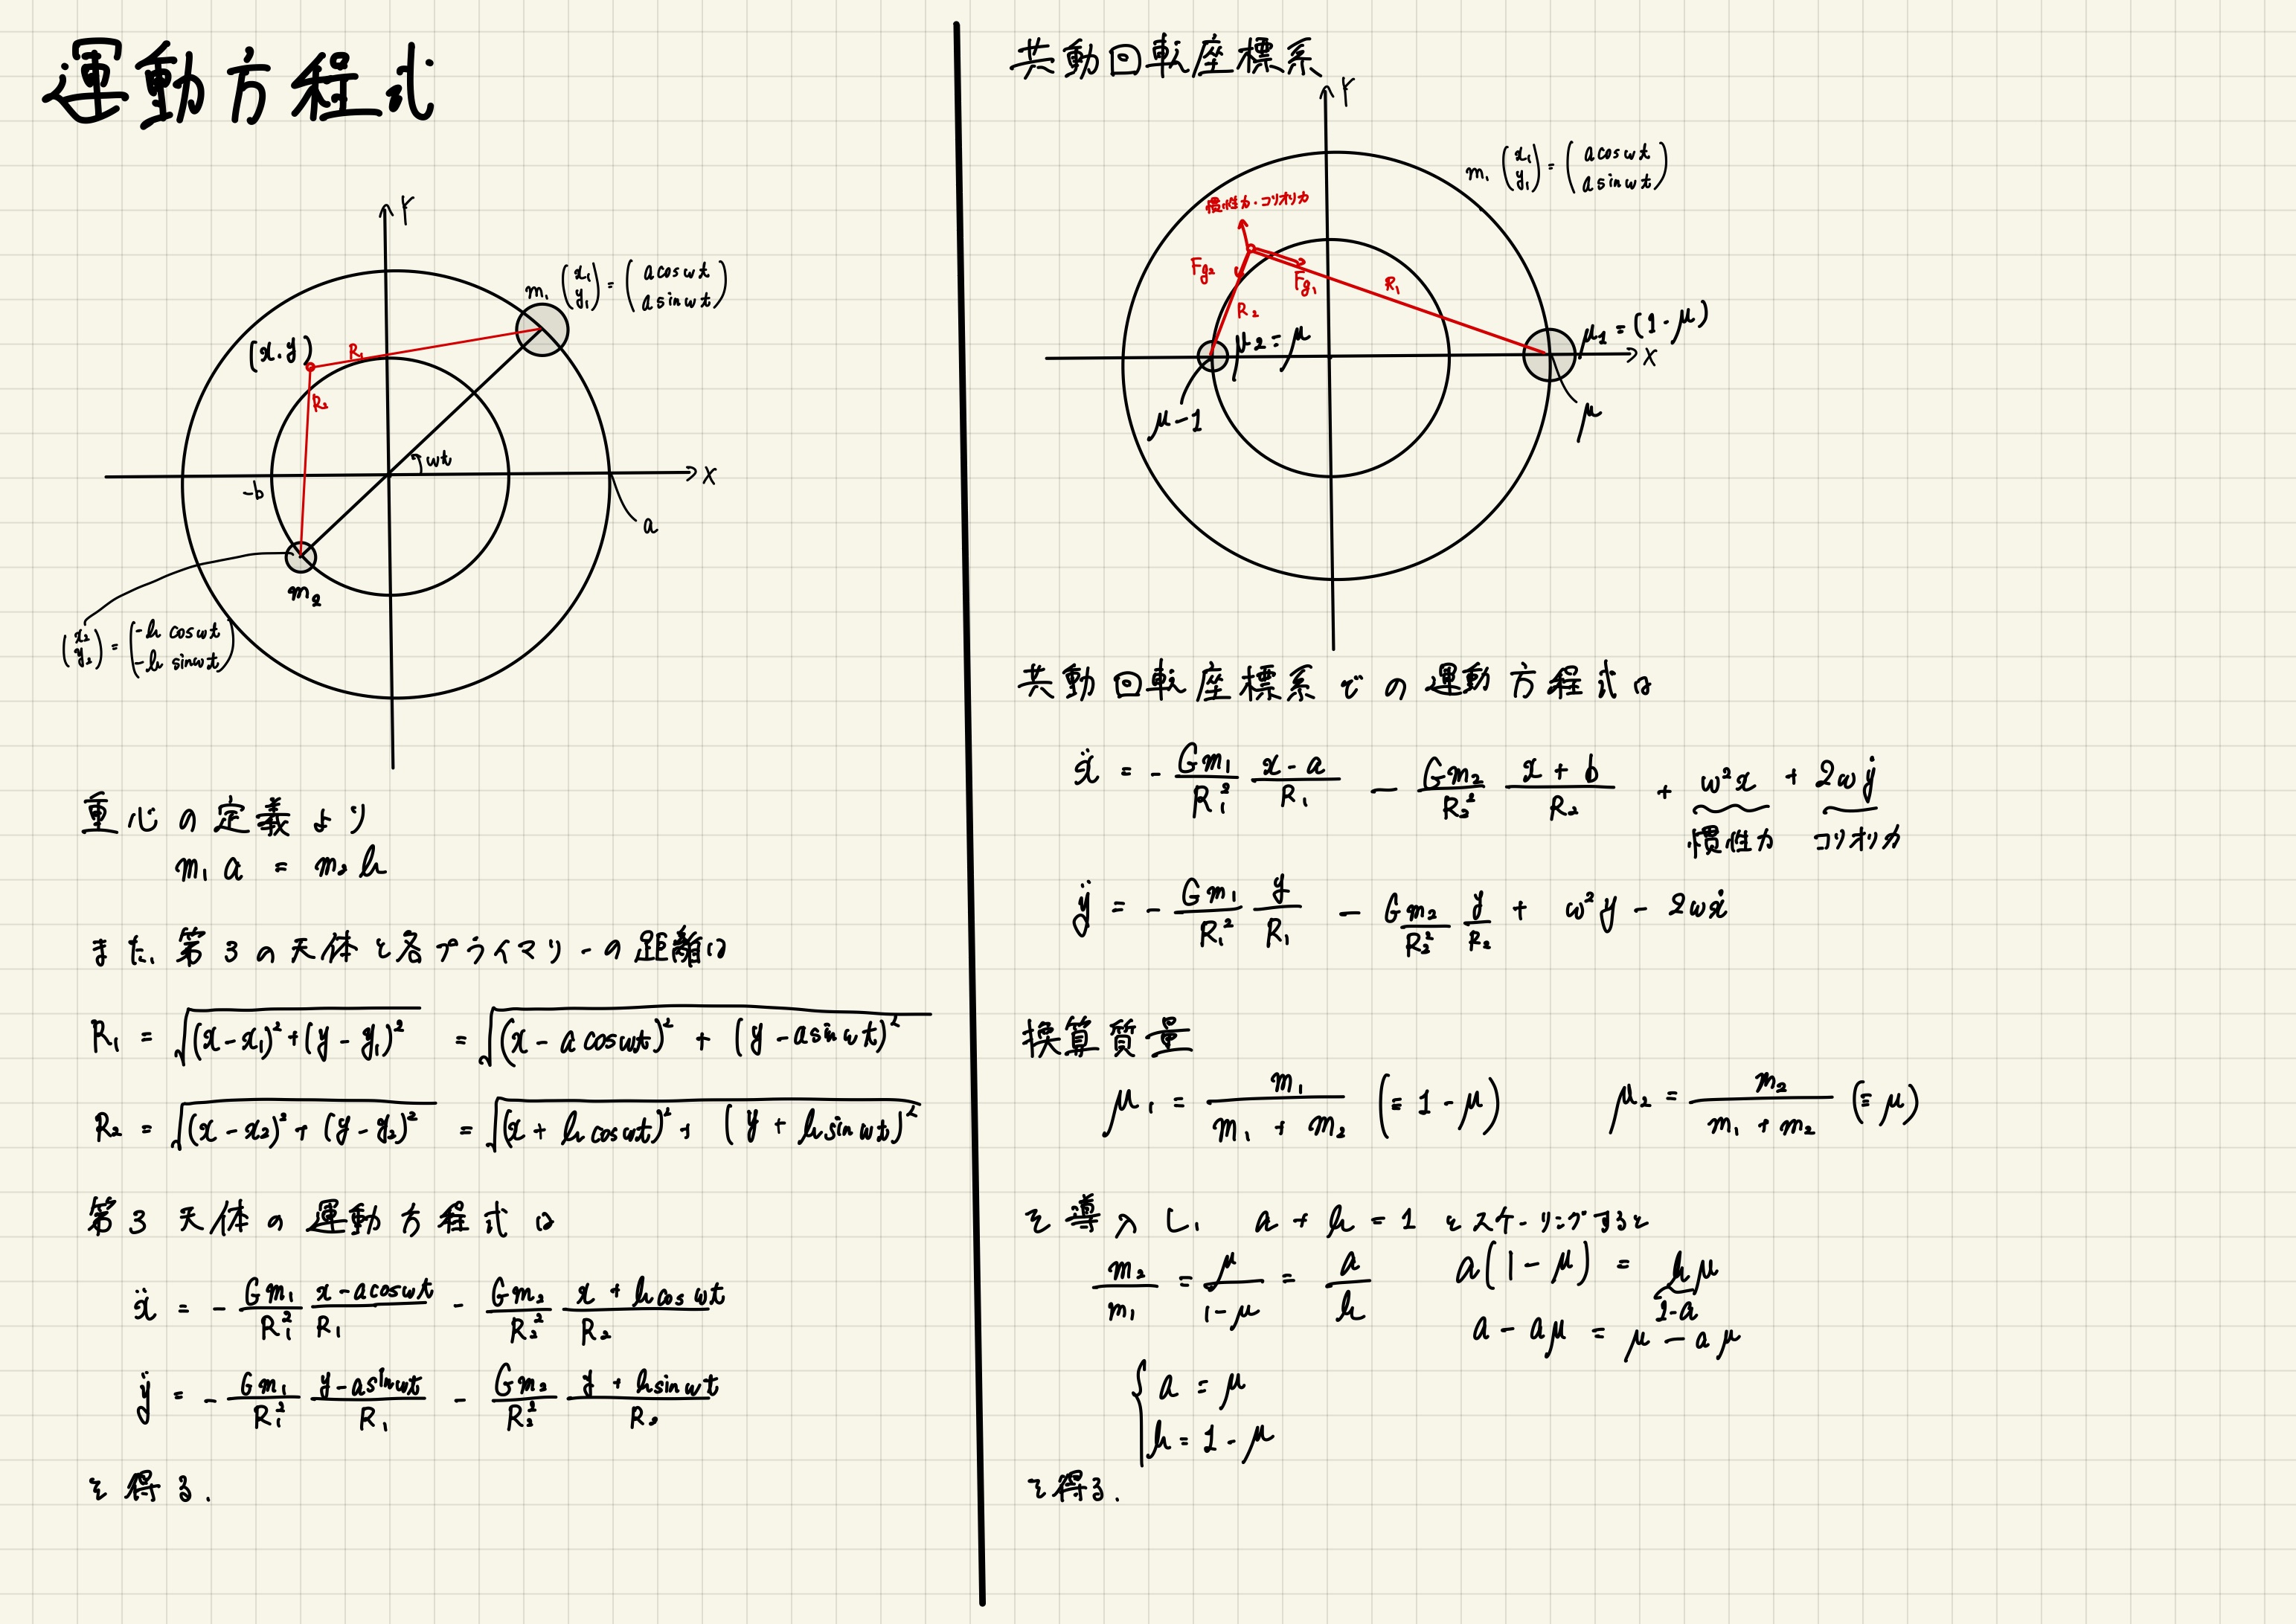 運動方程式
Y
m₁ (x₁ y₁) = (a cos ωt a sin ωt)
(x. y)
R₁
R₂
ωt
X
-b
a
m₂
(x₂ y₂) = (-b cos ωt -b sin ωt)
重心の定義より
m₁ a = m₂ b
また、第3の天体と各プライマリーの距離は
R₁ = √((x-x₁)²+(y-y₁)²) = √((x-a cosωt)² + (y-a sin ωt)²)
R₂ = √((x-x₂)²+(y-y₂)²) = √((x+b cosωt)² + (y+b sin ωt)²)
第3天体の運動方程式は
ẍ = - Gm₁/R₁² (x-a cosωt)/R₁ - Gm₂/R₂² (x+b cos ωt)/R₂
ÿ = - Gm₁/R₁² (y-a sinωt)/R₁ - Gm₂/R₂² (y+b sin ωt)/R₂
を得る.
共動回転座標系
Y
m₁ (x₁ y₁) = (a cos ωt a sin ωt)
慣性力・コリオリ力
Fg₂
Fg₁
R₁
R₂
μ₂ = μ
μ₁ = (1-μ)
X
μ-1
μ
共動回転座標系での運動方程式は
ẍ = - Gm₁/R₁² (x-a)/R₁ - Gm₂/R₂² (x+b)/R₂ + ω²x + 2ωẏ
慣性力 コリオリ力
ÿ = - Gm₁/R₁² y/R₁ - Gm₂/R₂² y/R₂ + ω²y - 2ωẋ
換算質量
μ₁ = m₁/(m₁ + m₂) (≡ 1-μ) μ₂ = m₂/(m₁ + m₂) (≡ μ)
を導入し, a + b = 1 とスケーリングすると
m₂/m₁ = μ/(1-μ) = a/b a(1-μ) = bμ
1-a
a - aμ = μ - aμ
{ a = μ
b = 1-μ
を得る.